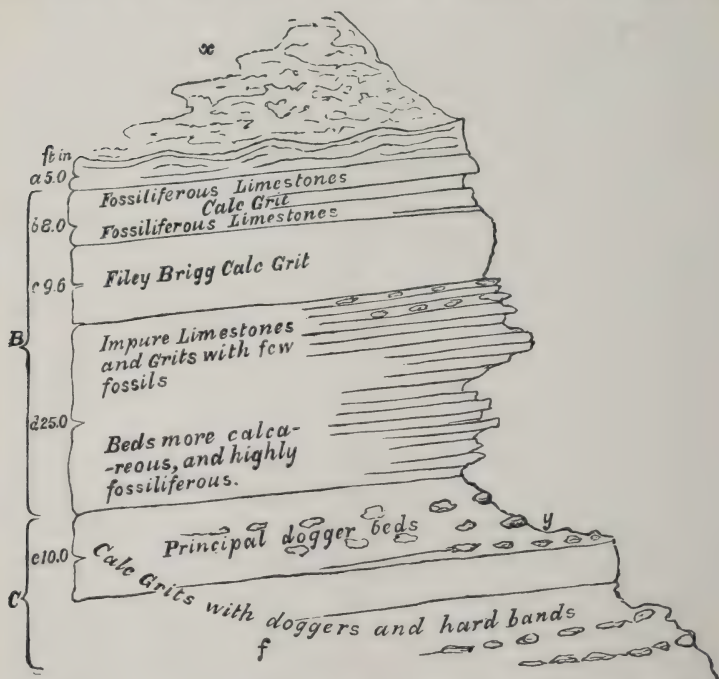 x
ft in
a 5.0
Fossiliferous Limestones
Calc Grit
b 8.0
Fossiliferous Limestones
c 9.6
Filey Brigg Calc Grit
B
Impure Limestones
and Grits with few
fossils
d 25.0
Beds more calca-
-reous, and highly
fossiliferous.
Principal dogger beds
y
e 10.0
Calc Grits with doggers and hard bands
C
f